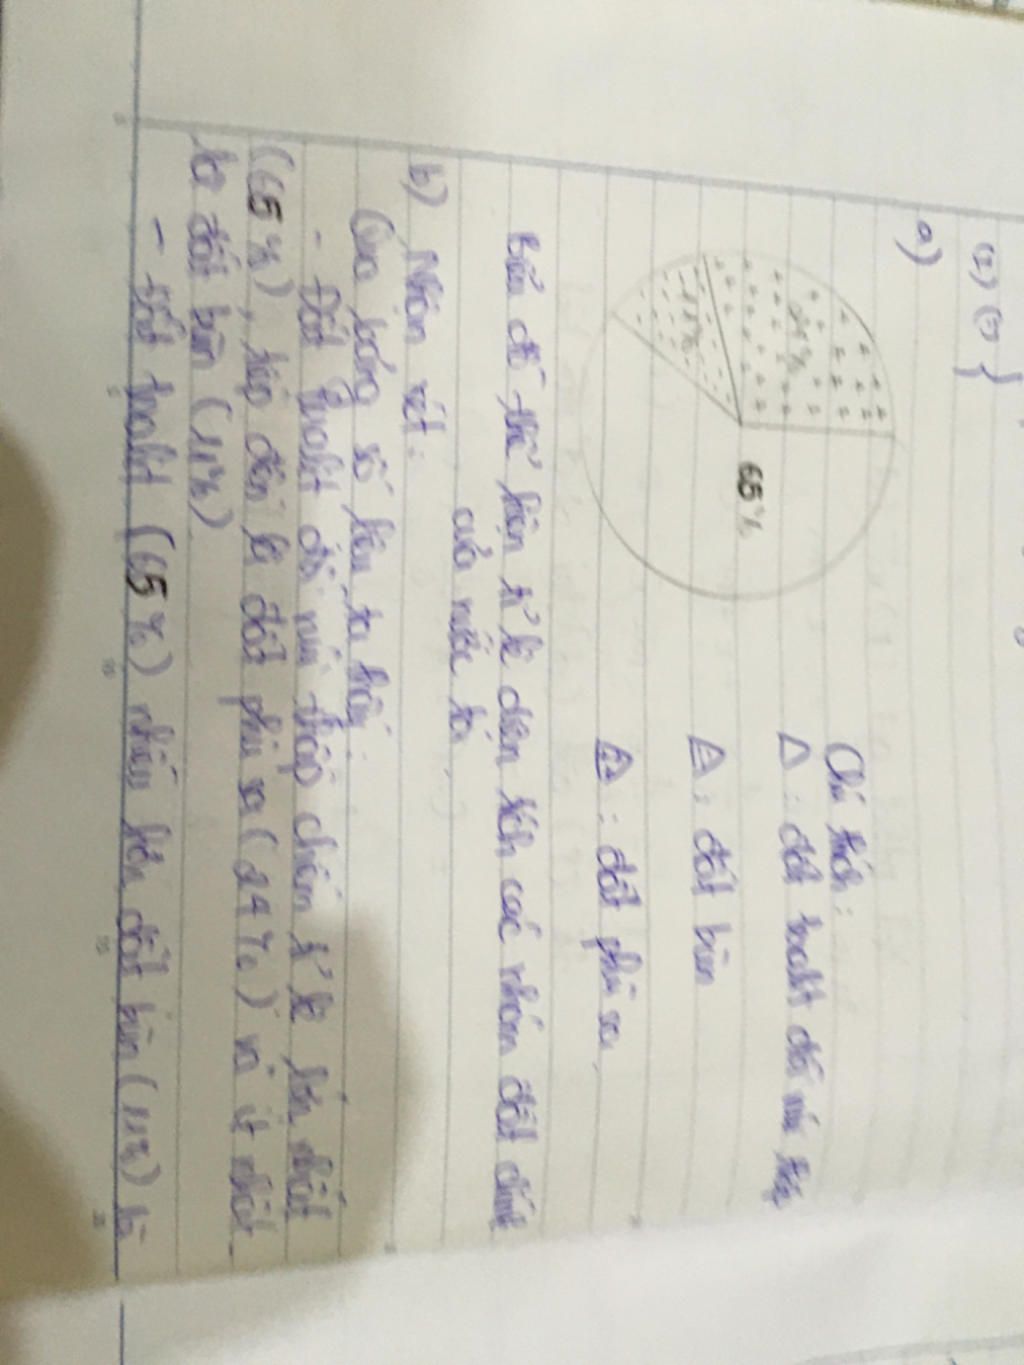 a)
24%
11%
65%
Chú thích:
: đất feralit đồi núi thấp
: đất bùn
: đất phù sa
Biểu đồ thể hiện tỉ lệ diện tích các nhóm đất chính
của nước ta
b) Nhận xét:
Qua bảng số liệu ta thấy:
- Đất feralit đồi núi thấp chiếm tỉ lệ lớn nhất
(65%), tiếp đến là đất phù sa (24%) và ít nhất
là đất bùn (11%)
- Đất feralit (65%) nhiều hơn đất bùn (11%) là